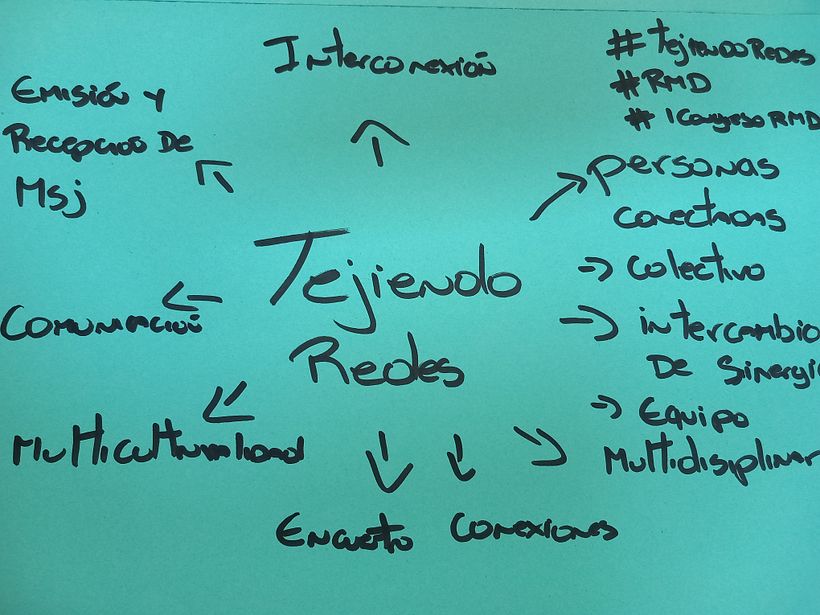 Interconexión
# TejiendoRedes
# RMD
# 1CongresoRMD
Emisión y
Recepción De
Msj
personas
conectadas
Tejiendo
Redes
→ colectivo
Comunicación
→ intercambio
De Sinergi
→ Equipo
Multidisiplinar
Multiculturalidad
Encuetro
Conexiones